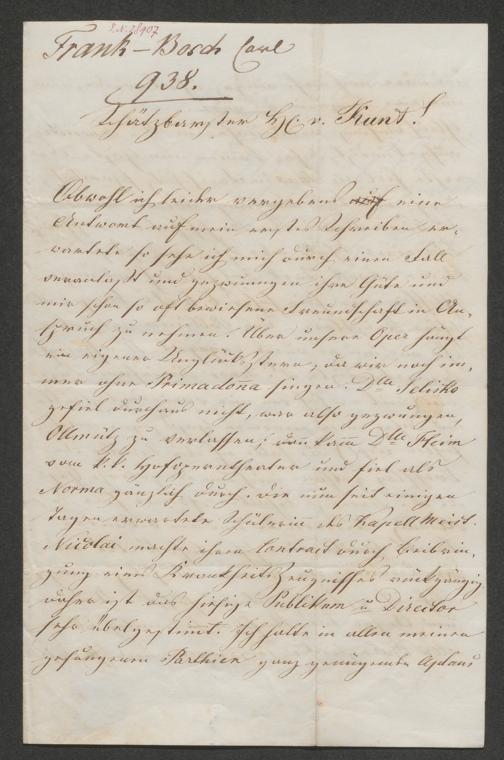 I.N. 38907
Frank-Bosch Carl
938.
Schätzbarster H. v. Kunt!
Obwohl ich leider vergebens auf eine
Antwort auf mein erstes Schreiben er-
wartete so sehe ich mich durch einen Fall
veranlaßt und gezwungen ihre Güte und
mir schon so oft bewiesene Freundschaft in An-
spruch zu nehmen. Über unsere Oper hängt
ein eigener Unglückstern, da wir noch im-
mer ohne Primadona singen. Dlle Selisko
gefiel durchaus nicht, war also gezwungen,
Ollmütz zu verlassen; dann kam Dlle Heim
vom k.k. Hofoperntheater und fiel als
Norma gänzlich durch. Die nun seit einigen
Tagen erwartete Schülerin des Kapellmeist.
Nicolai machte ihren Contract durch Beibrin-
gung eines Krankheits Zeugnisses rückgängig
daher ist das hiesige Publikum u Director
sehr übelgestimt. Ich hatte in allen meinen
gesungenen Parthien ganz genügenden Aplaus